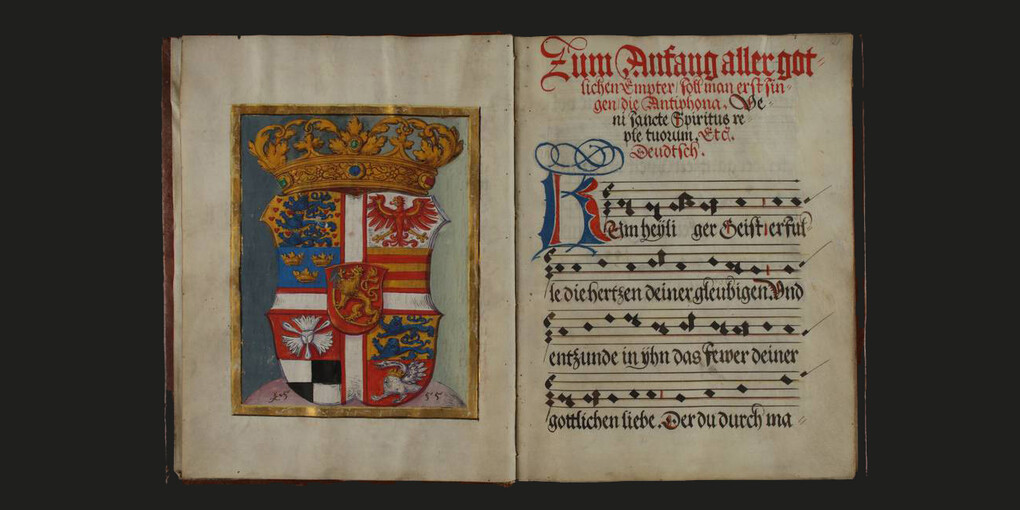 15 55
Zum Anfang aller got=
lichen Empter soll man erst sin=
gen die Antiphona. Ve=
ni sancte Spiritus re
ple tuorum. Etc.
Deudtsch.
Kum heyli ger Geist erful
le die hertzen deiner gleubigen. Und
entzunde in yhn das fewer deiner
gottlichen liebe. Der du durch ma=